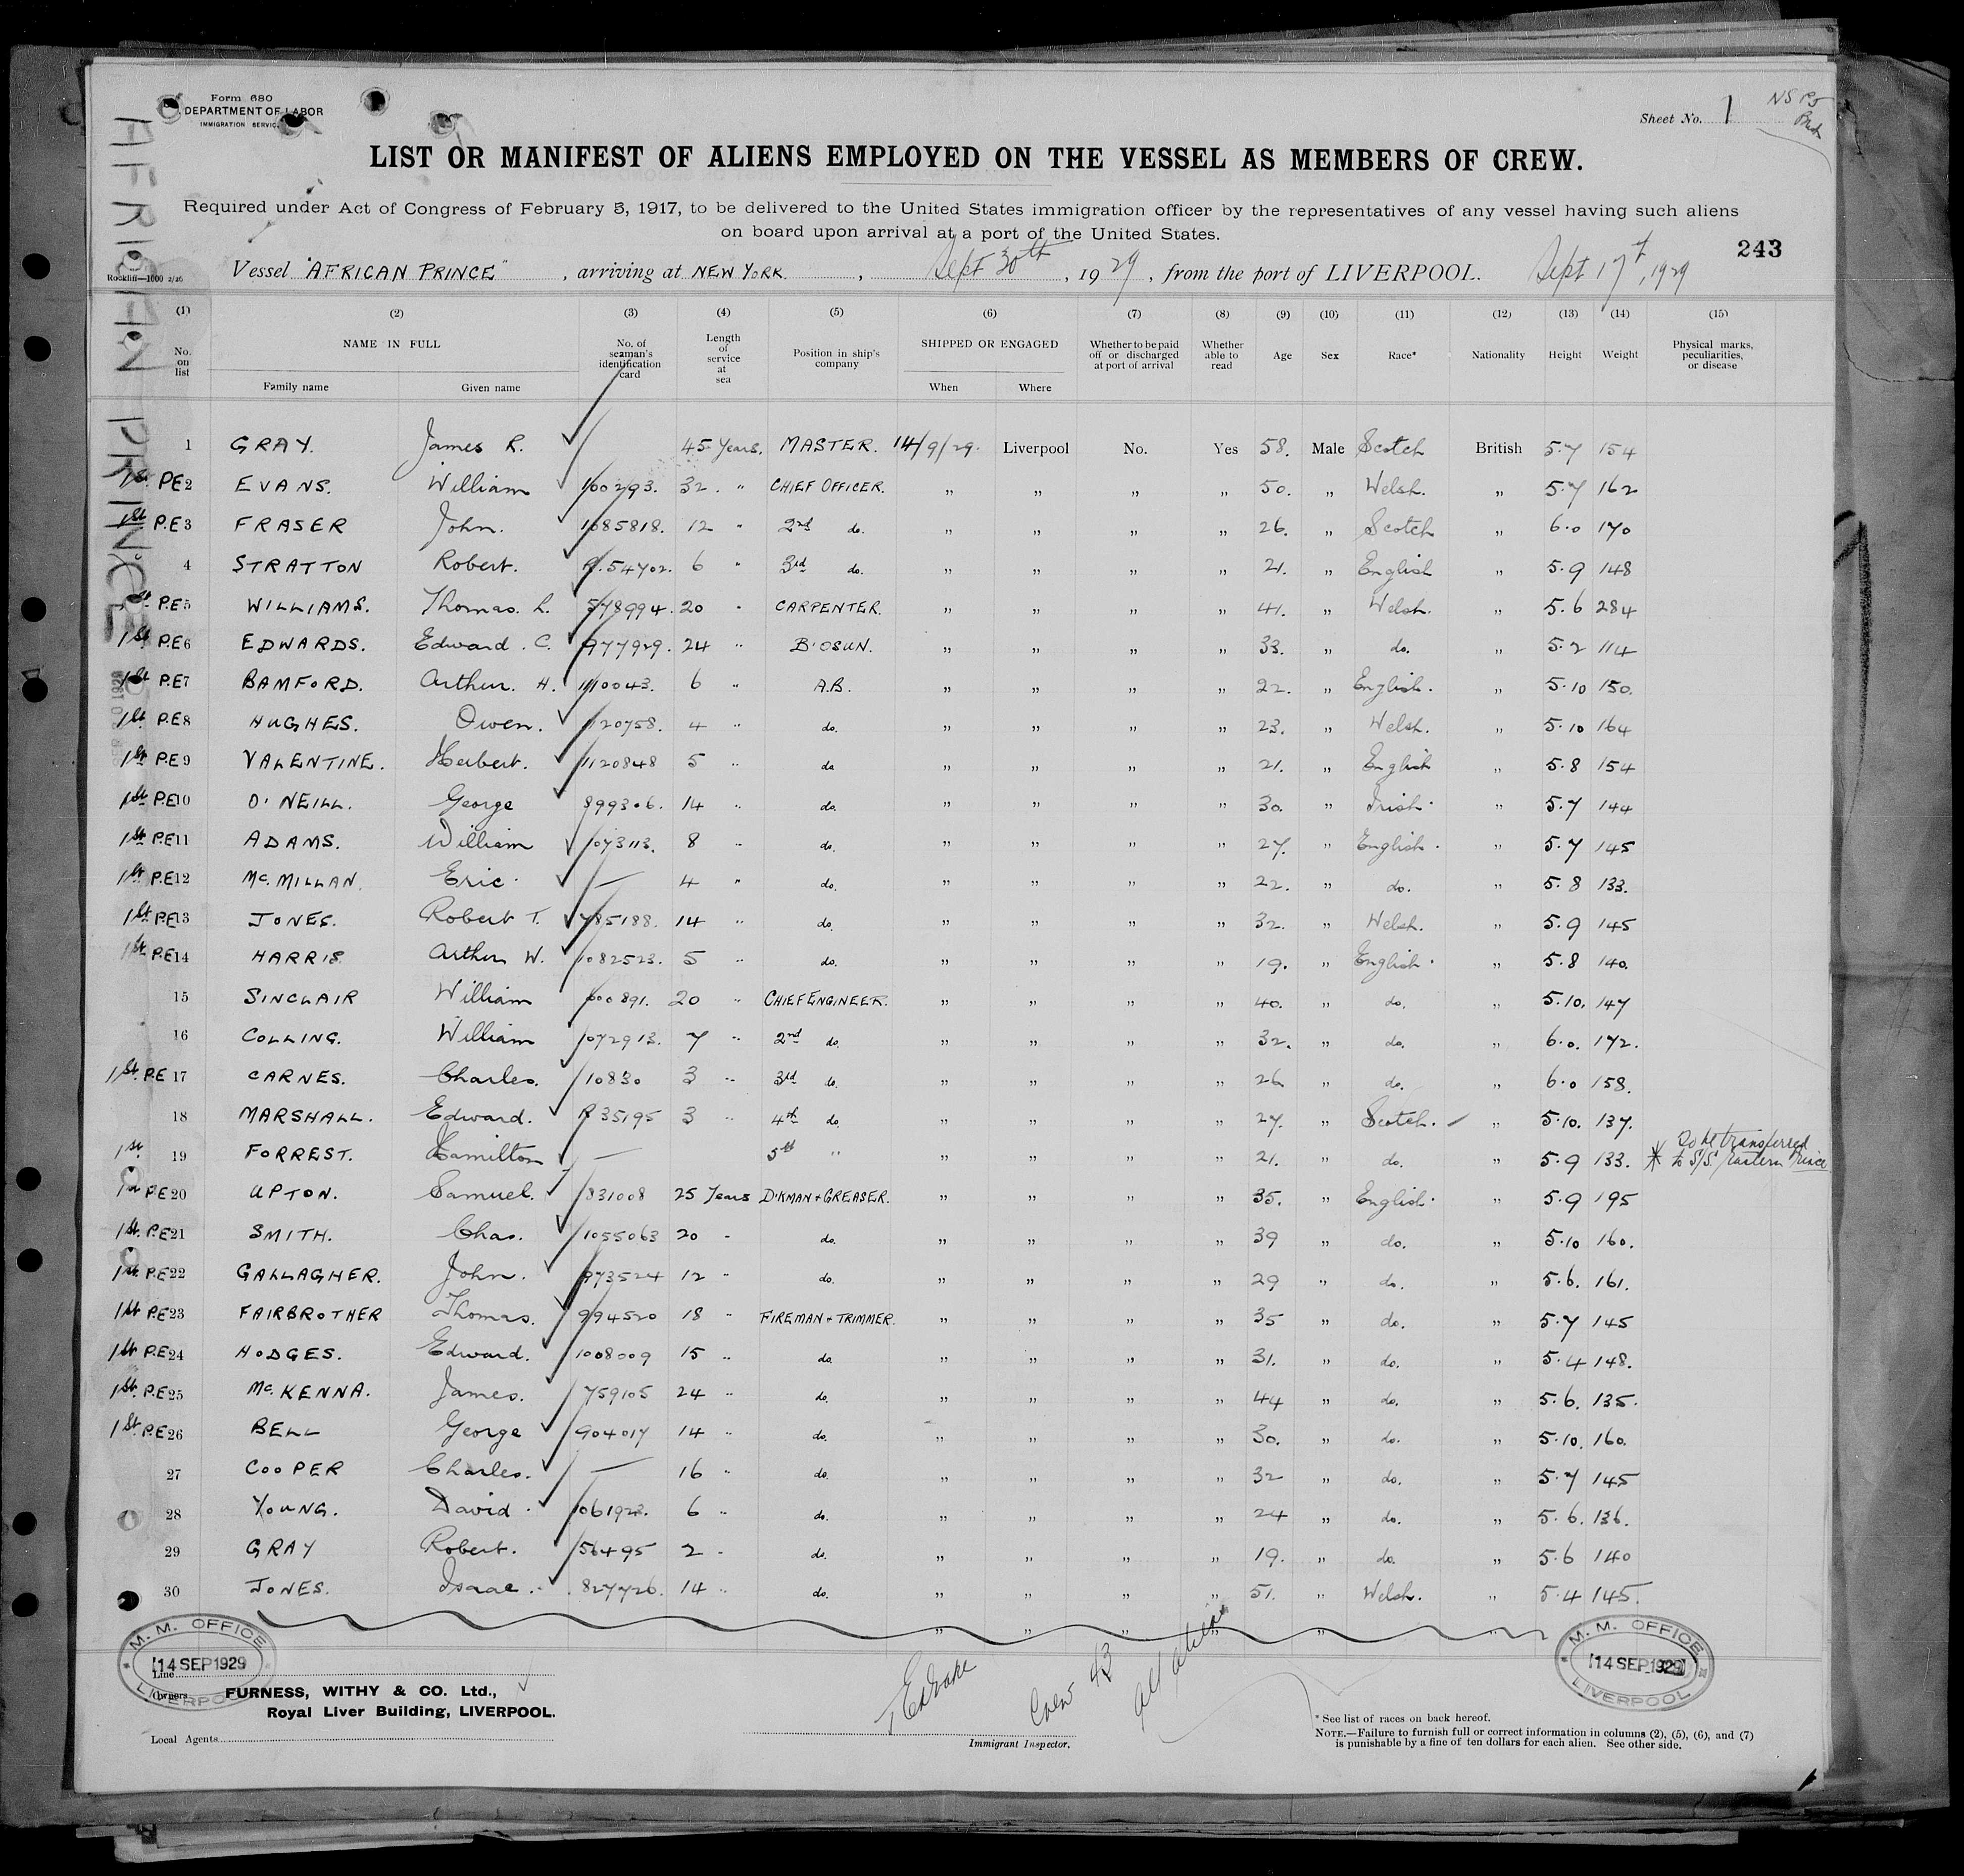 Form 680
DEPARTMENT OF LABOR
IMMIGRATION SERVICE
Sheet No. 1
LIST OR MANIFEST OF ALIENS EMPLOYED ON THE VESSEL AS MEMBERS OF CREW.
Required under Act of Congress of February 5, 1917, to be delivered to the United States immigration officer by the representatives of any vessel having such aliens
on board upon arrival at a port of the United States.
243
Rockliff—1000 2/26
Vessel "AFRICAN PRINCE", arriving at NEW YORK, Sept 30th, 1929, from the port of LIVERPOOL. Sept 17th, 1929
AFRICAN PRINCE
(1) (2) (3) (4) (5) (6) (7) (8) (9) (10) (11) (12) (13) (14) (15)
No. on list NAME IN FULL Family name Given name No. of seaman's identification card Length of service at sea Position in ship's company SHIPPED OR ENGAGED When Where Whether to be paid off or discharged at port of arrival Whether able to read Age Sex Race* Nationality Height Weight Physical marks, peculiarities, or disease
1 GRAY. James R. 45 Years. MASTER. 14/9/29. Liverpool No. Yes 58. Male Scotch British 5.7 154
1st PE 2 EVANS. William 100293. 32 " CHIEF OFFICER. " " " " 50. " Welsh. " 5.7 162
1st P.E 3 FRASER John. 1085818. 12 " 2nd do. " " " " 26. " Scotch " 6.0 170
4 STRATTON Robert. 54702. 6 " 3rd do. " " " " 21. " English " 5.9 148
1st P.E 5 WILLIAMS. Thomas. L. 578994. 20 " CARPENTER. " " " " 41. " Welsh. " 5.6 284
1st P.E 6 EDWARDS. Edward. C. 977929. 24 " B'OSUN. " " " " 33. " do. " 5.2 114
1st P.E 7 BAMFORD. Arthur. H. 1110043. 6 " A.B. " " " " 22. " English. " 5.10 150.
1st P.E 8 HUGHES. Owen. 1120758. 4 " do. " " " " 23. " Welsh. " 5.10 164
1st P.E 9 VALENTINE. Herbert. 1120848 5 " do " " " " 21. " English " 5.8 154
1st P.E 10 O'NEILL. George 899306. 14 " do. " " " " 30. " Irish. " 5.7 144
1st P.E 11 ADAMS. William 1073113. 8 " do. " " " " 27. " English. " 5.7 145
1st P.E 12 Mc.MILLAN. Eric. — 4 " do. " " " " 22. " do. " 5.8 133.
1st P.E 13 JONES. Robert T. 785188. 14 " do. " " " " 32. " Welsh. " 5.9 145
1st P.E 14 HARRIS Arthur W. 1082523. 5 " do. " " " " 19. " English. " 5.8 140.
15 SINCLAIR William 600891. 20 " CHIEF ENGINEER. " " " " 40. " do. " 5.10. 147
16 COLLING. William 1072913. 7 " 2nd do. " " " " 32. " do. " 6.0. 172.
1st P.E 17 CARNES. Charles. 10830 3 " 3rd do. " " " " 26 " do. " 6.0 158.
18 MARSHALL. Edward. R 35195 3 " 4th do. " " " " 27. " Scotch. " 5.10. 137.
1st 19 FORREST. Hamilton — 5th " " " " " 21. " do. " 5.9 133. * To be transferred to S/S. Eastern Prince
1st P.E 20 UPTON. Samuel. 831008 25 Years D'KMAN + GREASER. " " " " 35. " English. " 5.9 195
1st. P.E 21 SMITH. Chas. 1055063 20 " do. " " " " 39 " do. " 5.10 160.
1st P.E 22 GALLAGHER. John. 973524 12 " do. " " " " 29 " do. " 5.6. 161.
1st P.E 23 FAIRBROTHER Thomas. 994520 18 " FIREMAN + TRIMMER. " " " " 35 " do. " 5.7 145
1st P.E 24 HODGES. Edward. 1008009 15 " do. " " " " 31. " do. " 5.4 148.
1st. P.E 25 Mc.KENNA. James. 759105 24 " do. " " " " 44 " do. " 5.6. 135.
1st P.E 26 BELL George 904017 14 " do. " " " " 30. " do. " 5.10. 160.
27 COOPER Charles. — 16 " do. " " " " 32 " do. " 5.7 145
28 YOUNG. David. 1061923. 6 " do. " " " " 24 " do. " 5.6. 136.
29 GRAY Robert. 56495 2 " do. " " " " 19. " do. " 5.6 140
30 JONES. Isaac. 827726. 14 " do. " " " " 51. " Welsh. " 5.4 145.
M. M. OFFICE
14 SEP 1929
LIVERPOOL
M. M. OFFICE
14 SEP 1929
LIVERPOOL
Line
Owners FURNESS, WITHY & CO. Ltd.,
Royal Liver Building, LIVERPOOL.
Local Agents
Crew 43
Immigrant Inspector.
* See list of races on back hereof.
NOTE.—Failure to furnish full or correct information in columns (2), (5), (6), and (7)
is punishable by a fine of ten dollars for each alien. See other side.